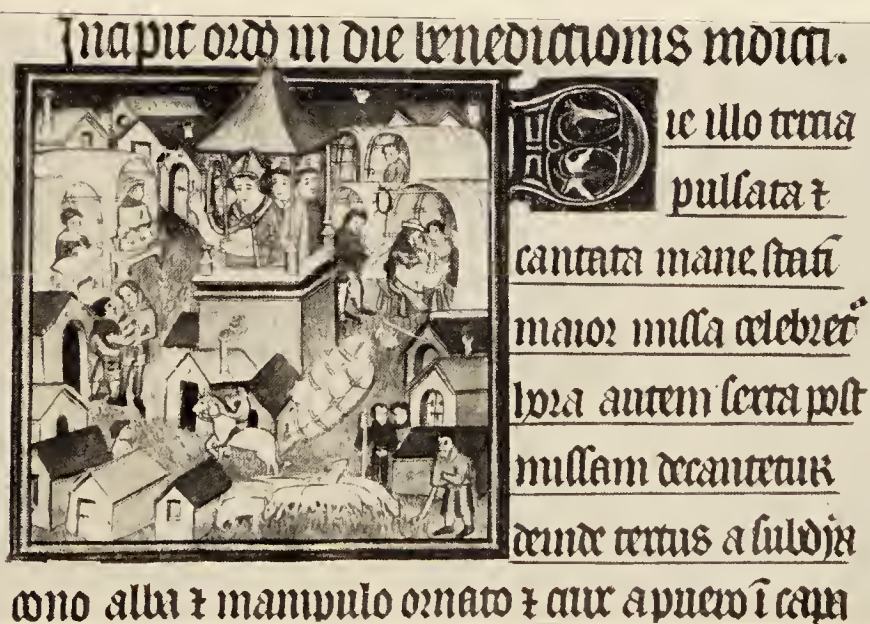 Incipit ordo in die benedictionis indicti.
Die illo tercia
pulsata ⁊
cantata mane. stati͂
maior missa celebret᷑
hora autem sexta post
missam decantetur
deinde textus a subdya
cono alba ⁊ manipulo ornato ⁊ crux a puero ī capa